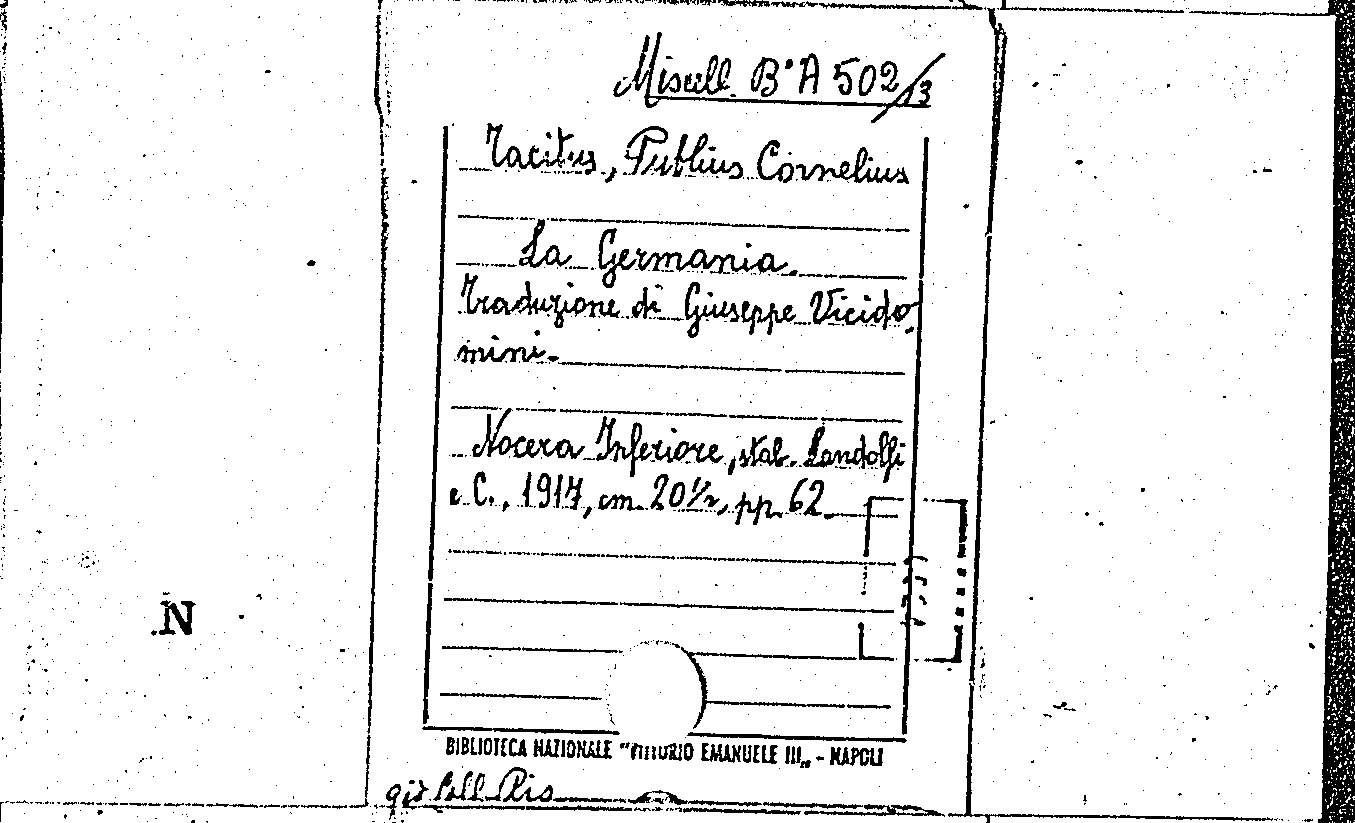 Miscell. B° A 502/13
Tacitus, Publius Cornelius
La Germania.
Traduzione di Giuseppe Vicido-
mini.
Nocera Inferiore, stab. Landolfi
e C., 1917, cm. 20½, pp. 62
N
BIBLIOTECA NAZIONALE "VITTORIO EMANUELE III„ - NAPOLI
già Coll. Ris